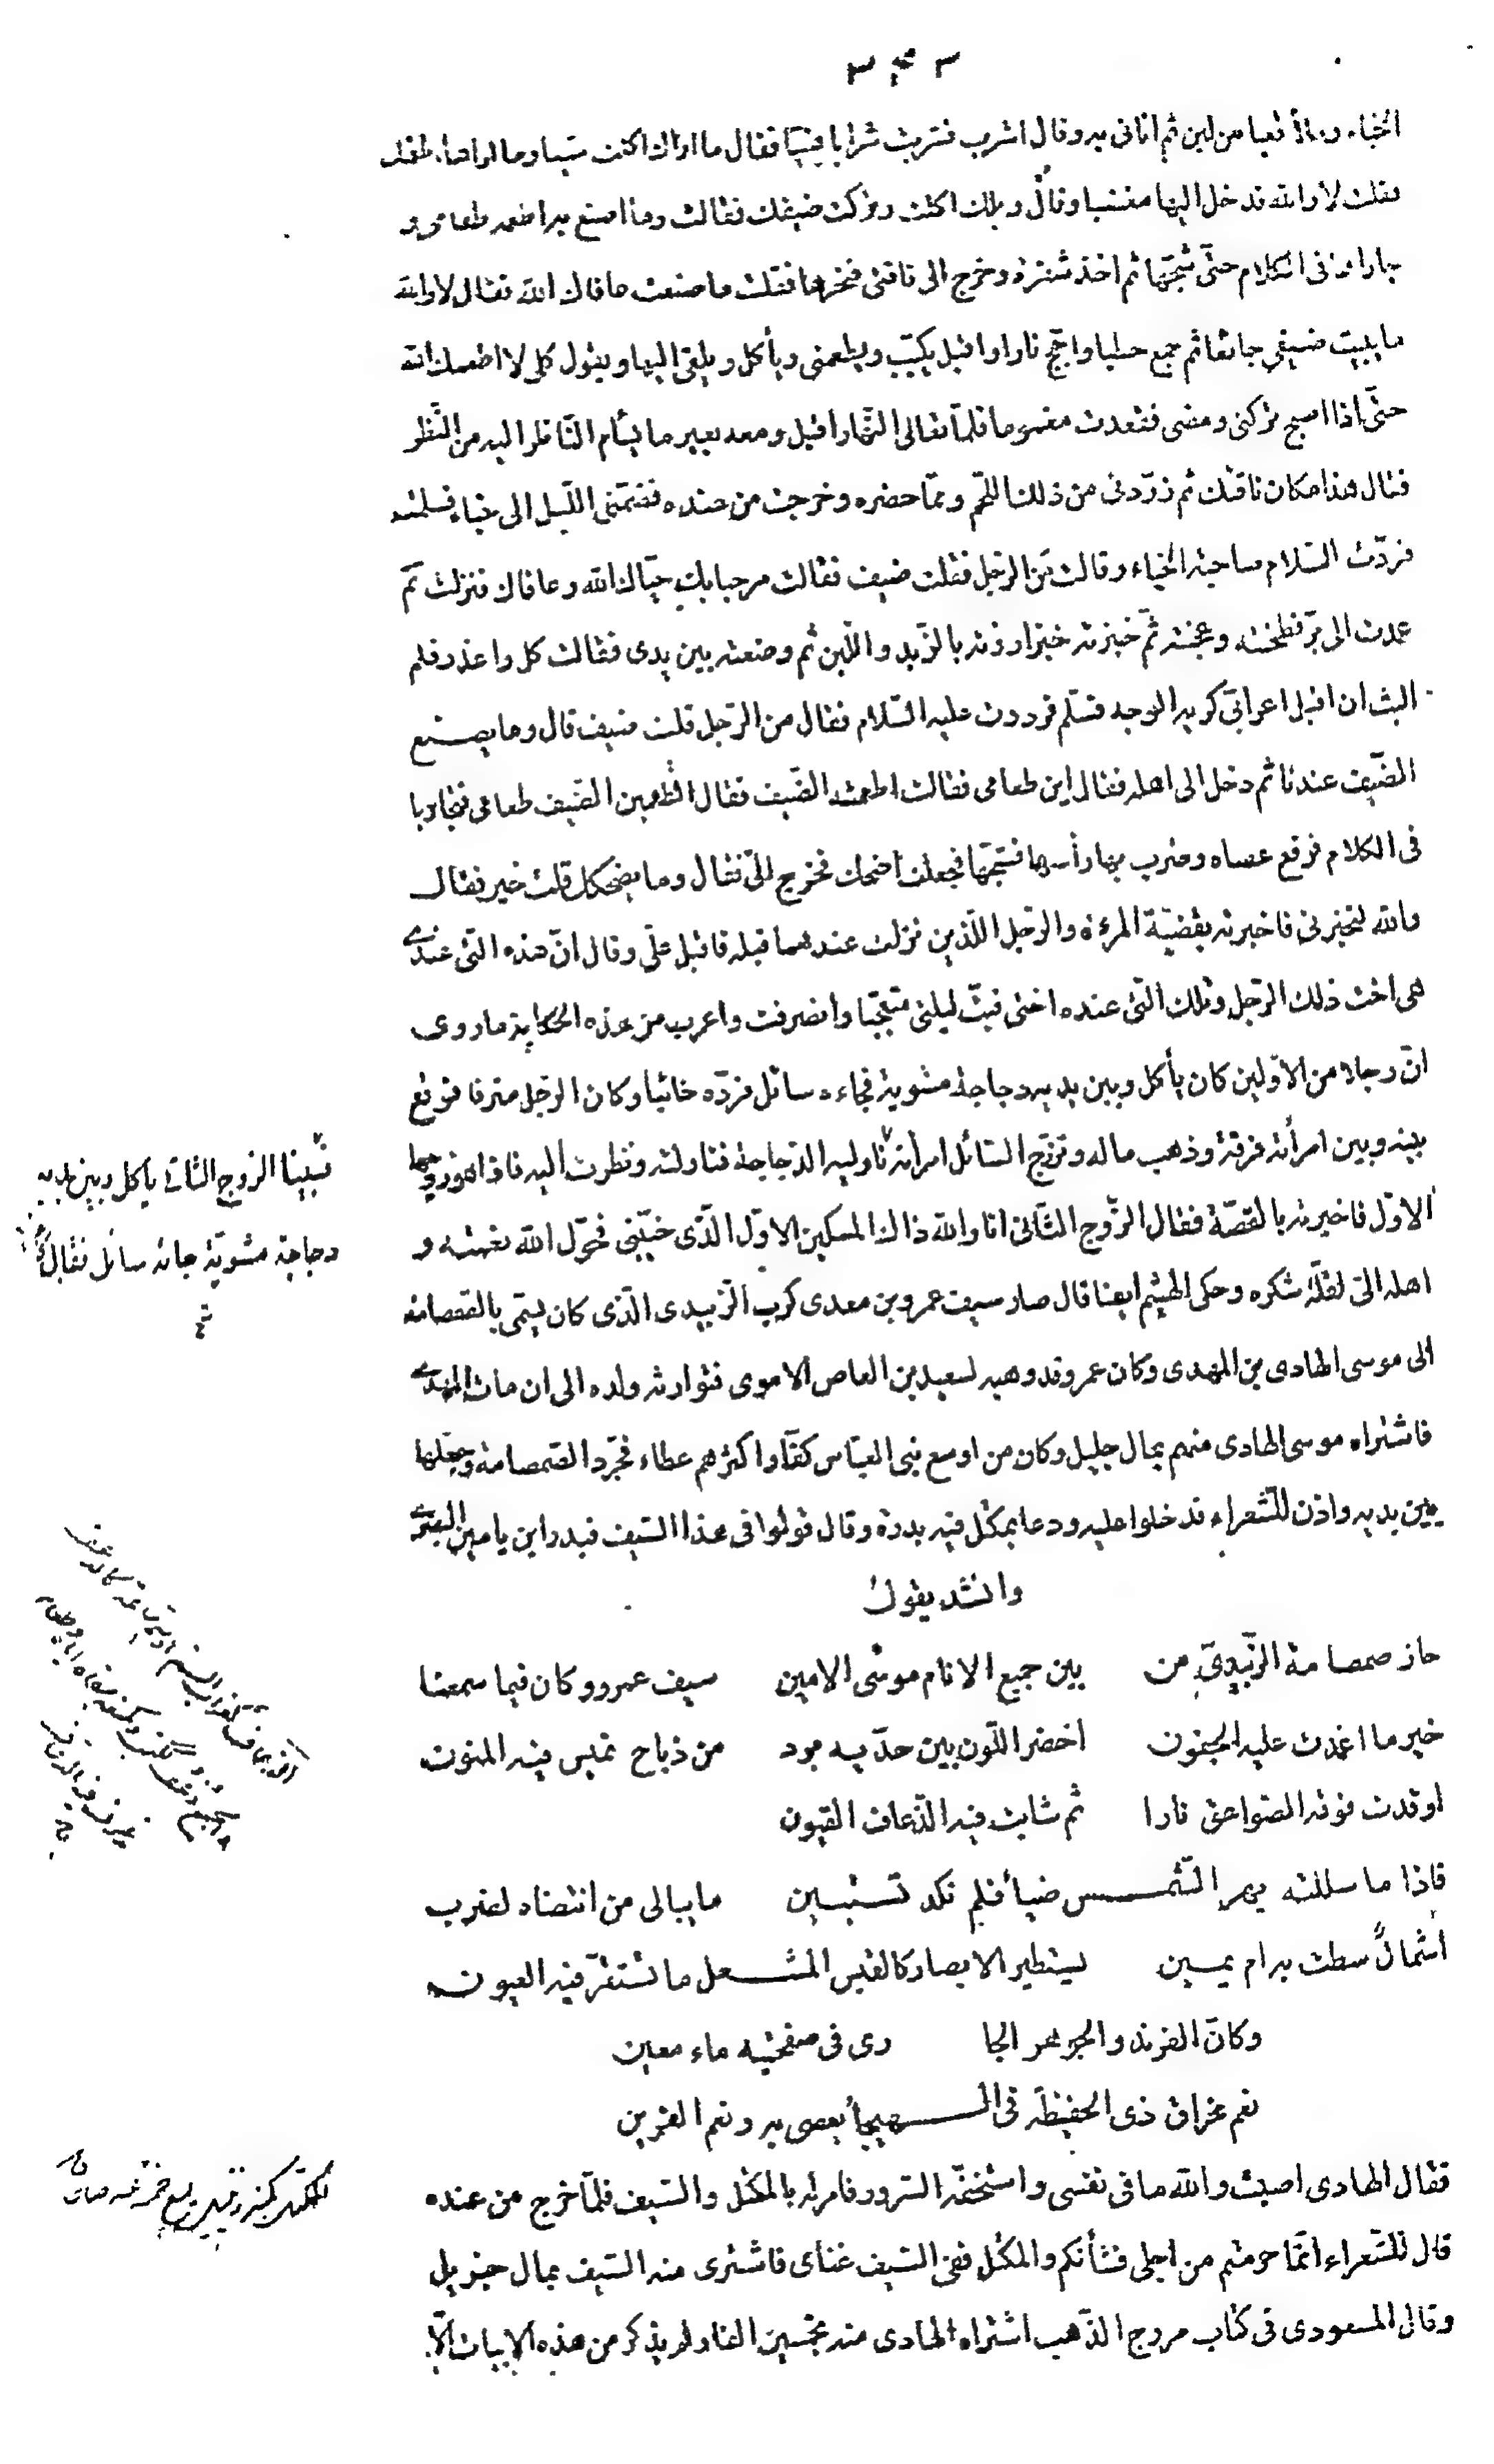 ٣٤٣
الخباء وملأ قعبا من لبن ثم اتانى به وقال اشرب فشربت شرابا هنيّا فقال ما اراك اكلت شيئا وما اراها
فقلت لا والله فدخل اليها مغضبا وقال ويلك اكلت وتركت ضيفك فقالت وما اصنع به اطعمه طعامى و
جاراها فى الكلام حتّى شجّها ثم اخذ شفرة وخرج الى ناقتى فنحرها فقلت ما صنعت عافاك الله فقال لا والله
ما يبيت ضيفى جائعا ثم جمع حطبا واجّج نارا واقبل يكبّب ويطعمنى ويأكل ويلقى اليها ويقول كلى لا اطعمك الله
حتّى اذا اصبح تركنى ومضى فقعدت مغموما فلمّا تعالى النّهار اقبل ومعه بعير ما يسأم النّاظر اليه من النّظر
فقال هذا مكان ناقتك ثم زوّدنى من ذلك اللحم وممّا حضره وخرجت من عنده فضمّنى اللّيل الى خباء فسلمت
فردّت السّلام صاحبة الخباء وقالت مَن الرّجل فقلت ضيف فقالت مرحبا بك حيّاك الله وعافاك فنزلت ثمّ
عمدت الى برّ فطحنته وعجنته ثمّ خبزته خبزا روته بالزّبد واللّبن ثم وضعته بين يدى فقالت كل واعذر فلم
البث ان اقبل اعرابىّ كريه الوجه فسلّم فرددت عليه السّلام فقال من الرّجل قلت ضيف قال وما يصنع
الضّيف عندنا ثم دخل الى اهله فقال اين طعامى فقالت اطعمته الضّيف فقال اتطعمين الضّيف طعامى فتجاوبا
فى الكلام فرفع عصاه وضرب بها رأسها فشجّها فجعلت اضحك فخرج الىّ فقال وما يضحكك قلت خير فقال
والله لتخبرنى فاخبرته بقضيّة المرءة والرّجل اللّذين نزلت عندهما قبله فاقبل علىّ وقال انّ هذه الّتى عندى
هى اخت ذلك الرّجل وتلك الّتى عنده اختى فبتّ ليلتى متعجّبا وانصرفت واغرب من هذه الحكاية ما روى
انّ رجلا من الاوّلين كان يأكل وبين يديه دجاجة مشوية فجاءه سائل فردّه خائبا وكان الرّجل مترفا فوقع
بينه وبين امرأته فرقة وذهب ماله وتزوّج السّائل امرأته ناوليه الدّجاجة فناولته ونظرت اليه فاذا هو زوجها
فبينا الزوج الثانى يأكل وبين يديه
دجاجة مشويّة جائه سائل فقال
الاوّل فاخبرته بالقصّة فقال الزّوج الثّانى انا والله ذاك المسكين الاوّل الّذى خيّبنى فحوّل الله نعمته و
اهله الىّ لقلّة شكره وحكى الهيثم ايضا قال صار سيف عمرو بن معدى كرب الزّبيدى الّذى كان يسمّى بالصّمصامة
الى موسى الهادى بن المهدى وكان عمرو قد وهبه لسعيد بن العاص الاموى فتوارثه ولده الى ان مات المهدى
فاشتراه موسى الهادى منهم بمال جليل وكان من اوسع بنى العبّاس كفّا واكثرهم عطاء فجرّد الصّمصامة وجعلها
بين يديه واذن للشّعراء فدخلوا عليه ودعا بمكتل فيه بدرة وقال قولوا فى هذا السّيف فبدر ابن يامين البصرى
وانشد يقول
حاز صمصامة الزّبيدىّ من بين جميع الانام موسى الامين سيف عمرو وكان فيما سمعنا
خير ما اغمدت عليه الجفون اخضر اللّون بين حدّيه برد من ذباح تميس فيه المنون
اوقدت فوقه الصّواعق نارا ثم شابت فيه الذّعاف القيون
فاذا ما سللته بهر الشّمس ضيأ فلم تكد تستبين ما يبالى من انتضاه لضرب
أشمالٌ سطت به ام يمين يستطير الابصار كالقبس المشعل ما تستقرّ فيه العيون
وكأنّ الفرند والجوهر الجا رى فى صفحتيه ماء معين
نعم مخراق ذى الحفيظة فى الهيجأ يعصى به ونعم القرين
فقال الهادى اصبت والله ما فى نفسى واستخفّه السّرور فامر له بالمكتل والسّيف فلمّا خرج من عنده
قال للشّعراء انّما حرمتم من اجلى فشأنكم والمكتل ففى السّيف غناى فاشترى منه السّيف بمال جزيل
وقال المسعودى فى كتاب مروج الذّهب اشتراه الهادى منه بخمسين الفا ولم يذكر من هذه الابيات الّا